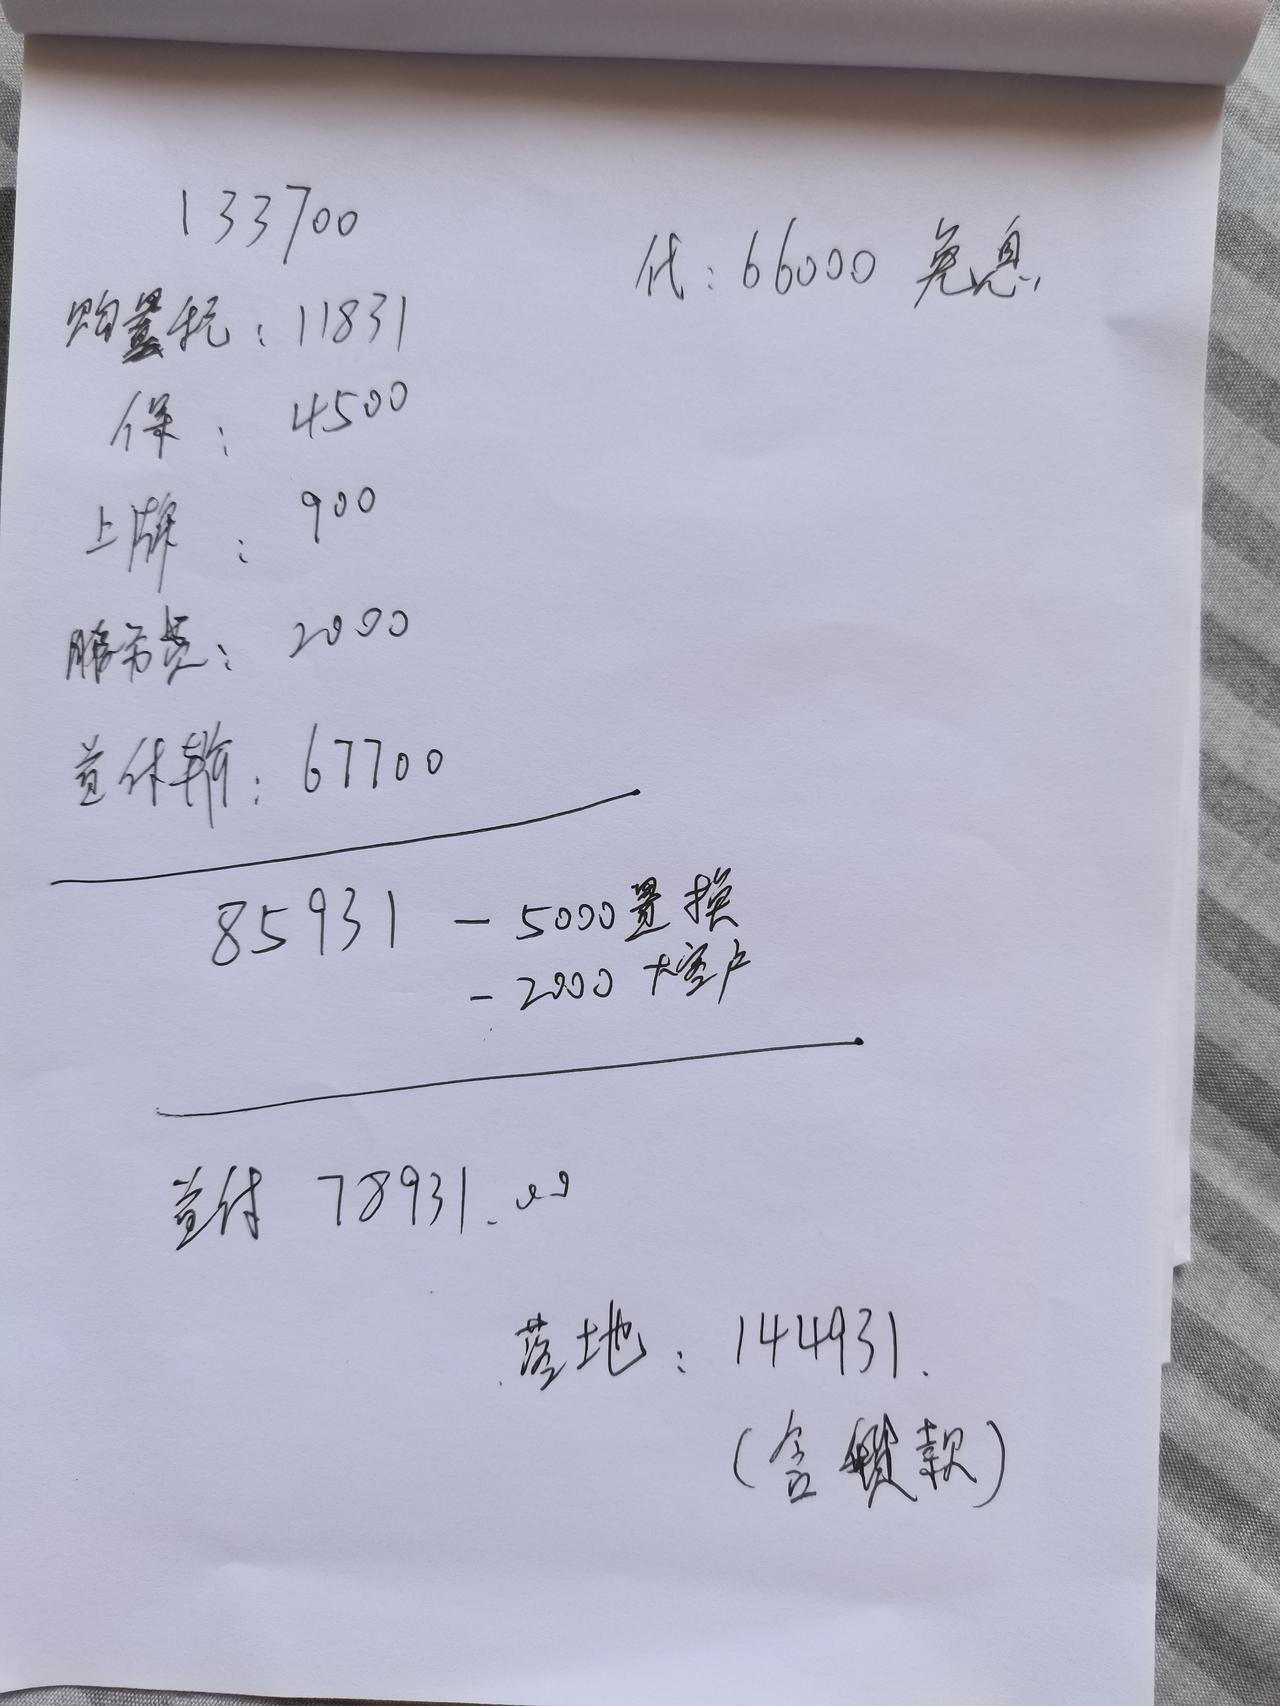 133700
代：66000 免息
购置税：11831
保：4500
上牌：900
服务费：2000
首付车价：67700
85931 - 5000置换
- 2000大客户
首付 78931.00
落地：144931.
(含贷款)